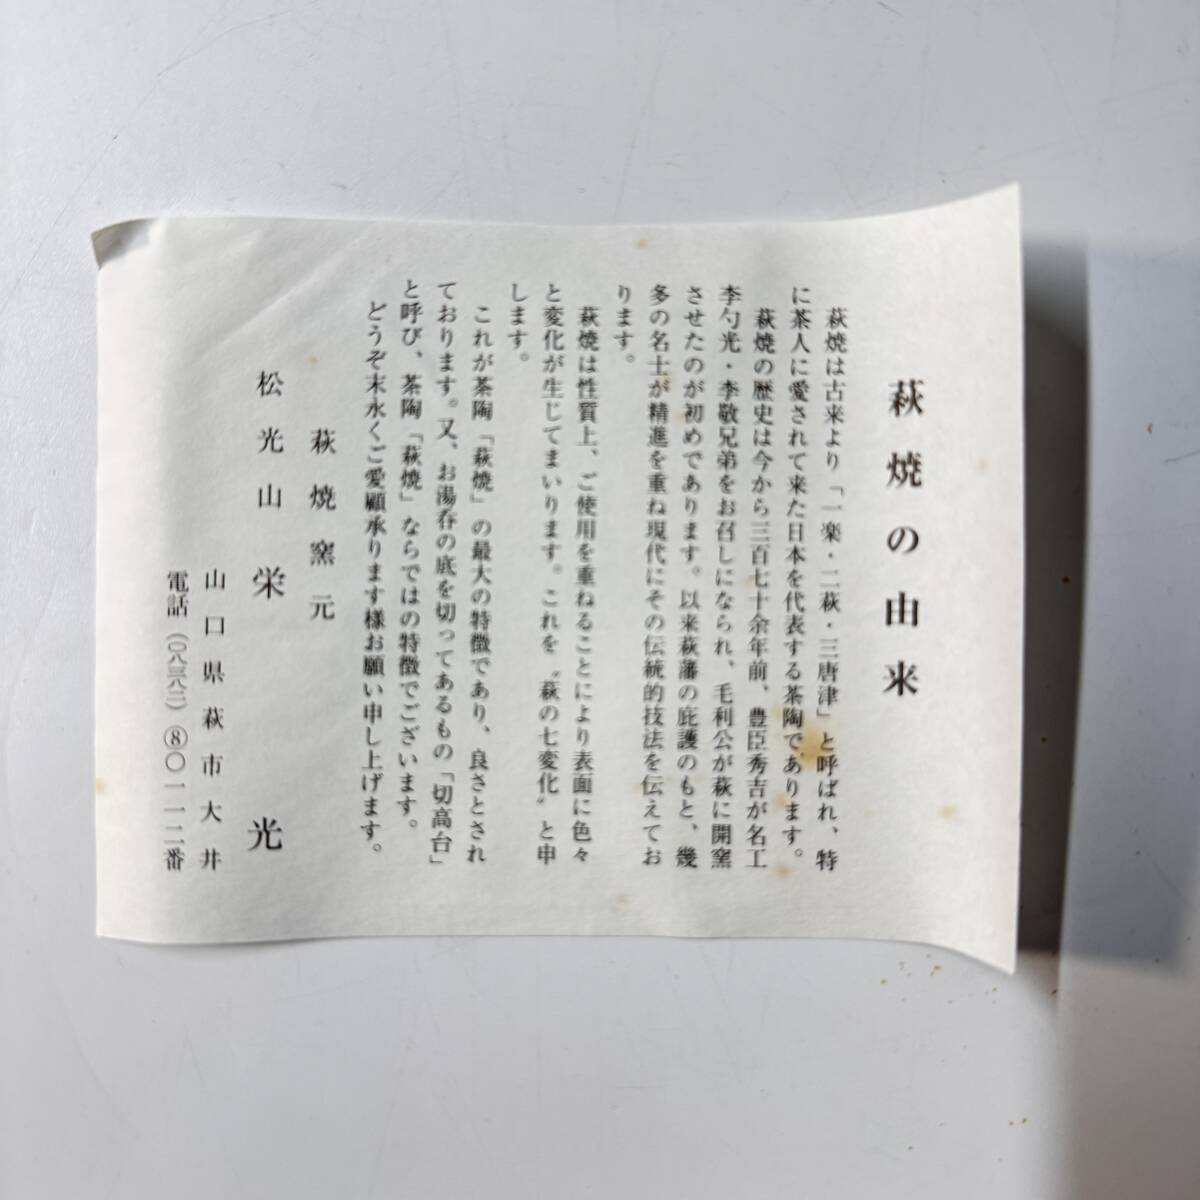 萩焼の由来
萩焼は古来より「一楽・二萩・三唐津」と呼ばれ、特
に茶人に愛されて来た日本を代表する茶陶であります。
萩焼の歴史は今から三百七十余年前、豊臣秀吉が名工
李勺光・李敬兄弟をお召しになられ、毛利公が萩に開窯
させたのが初めであります。以来萩藩の庇護のもと、幾
多の名士が精進を重ね現代にその伝統的技法を伝えてお
ります。
萩焼は性質上、ご使用を重ねることにより表面に色々
と変化が生じてまいります。これを〝萩の七変化〟と申
します。
これが茶陶「萩焼」の最大の特徴であり、良さとされ
ております。又、お湯呑の底を切ってあるもの「切高台」
と呼び、茶陶「萩焼」ならではの特徴でございます。
どうぞ末永くご愛顧承ります様お願い申し上げます。
萩焼窯元
松光山 栄光
山口県萩市大井
電話(〇八三八二)⑧〇一一二番